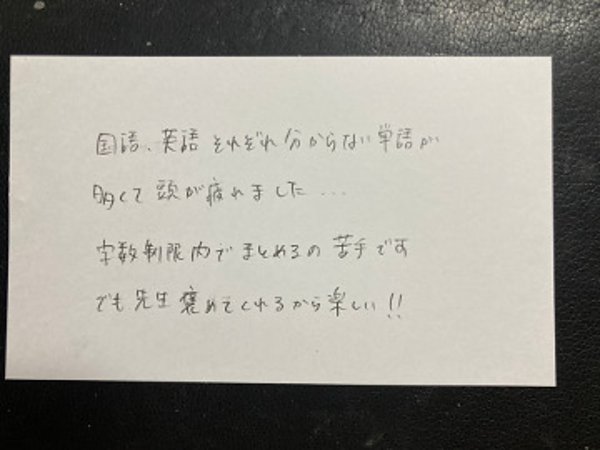 国語、英語それぞれ分からない単語が
多くて頭が疲れました...
字数制限内でまとめるの苦手です
でも先生褒めてくれるから楽しい!!